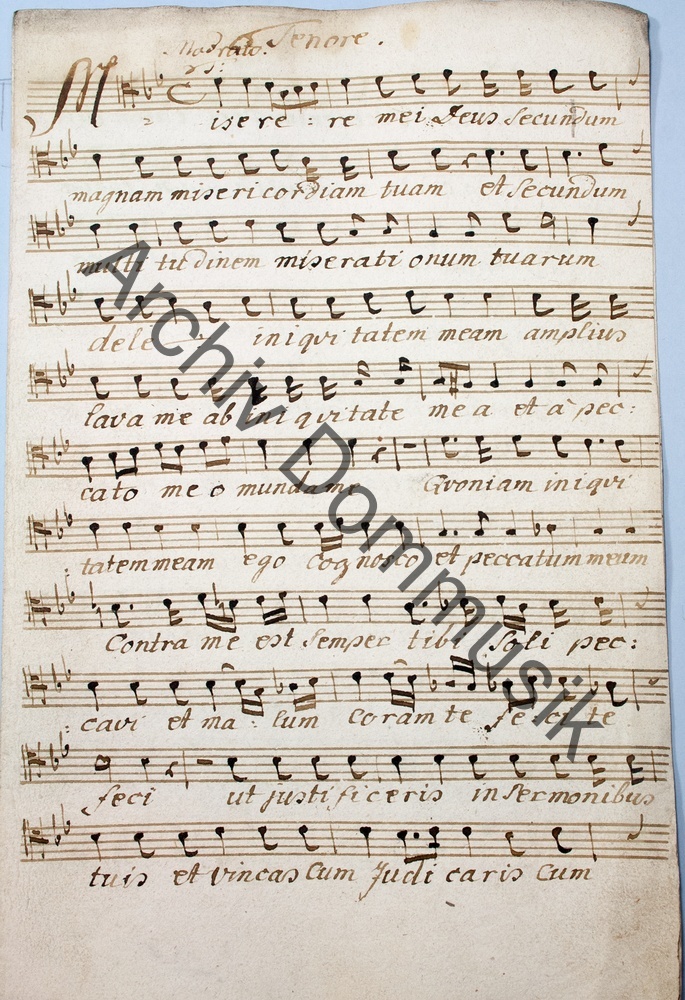 Tenore.
Miserere: re mei Deus secundum
magnam misericordiam tuam et secundum
multi tudinem miserati onum tuarum
dele iniqvi tatem meam amplius
lava me ab ini qvitate mea et à pec:
cato me o munda me Qvoniam iniqvi
tatem meam ego cognosco et peccatum meum
Contra me est semper tibi soli pec:
: cavi et ma: lum coram te feci te
feci ut justificeris in sermonibus
tuis et vincas Cum Judi caris Cum
Archiv Dommusik